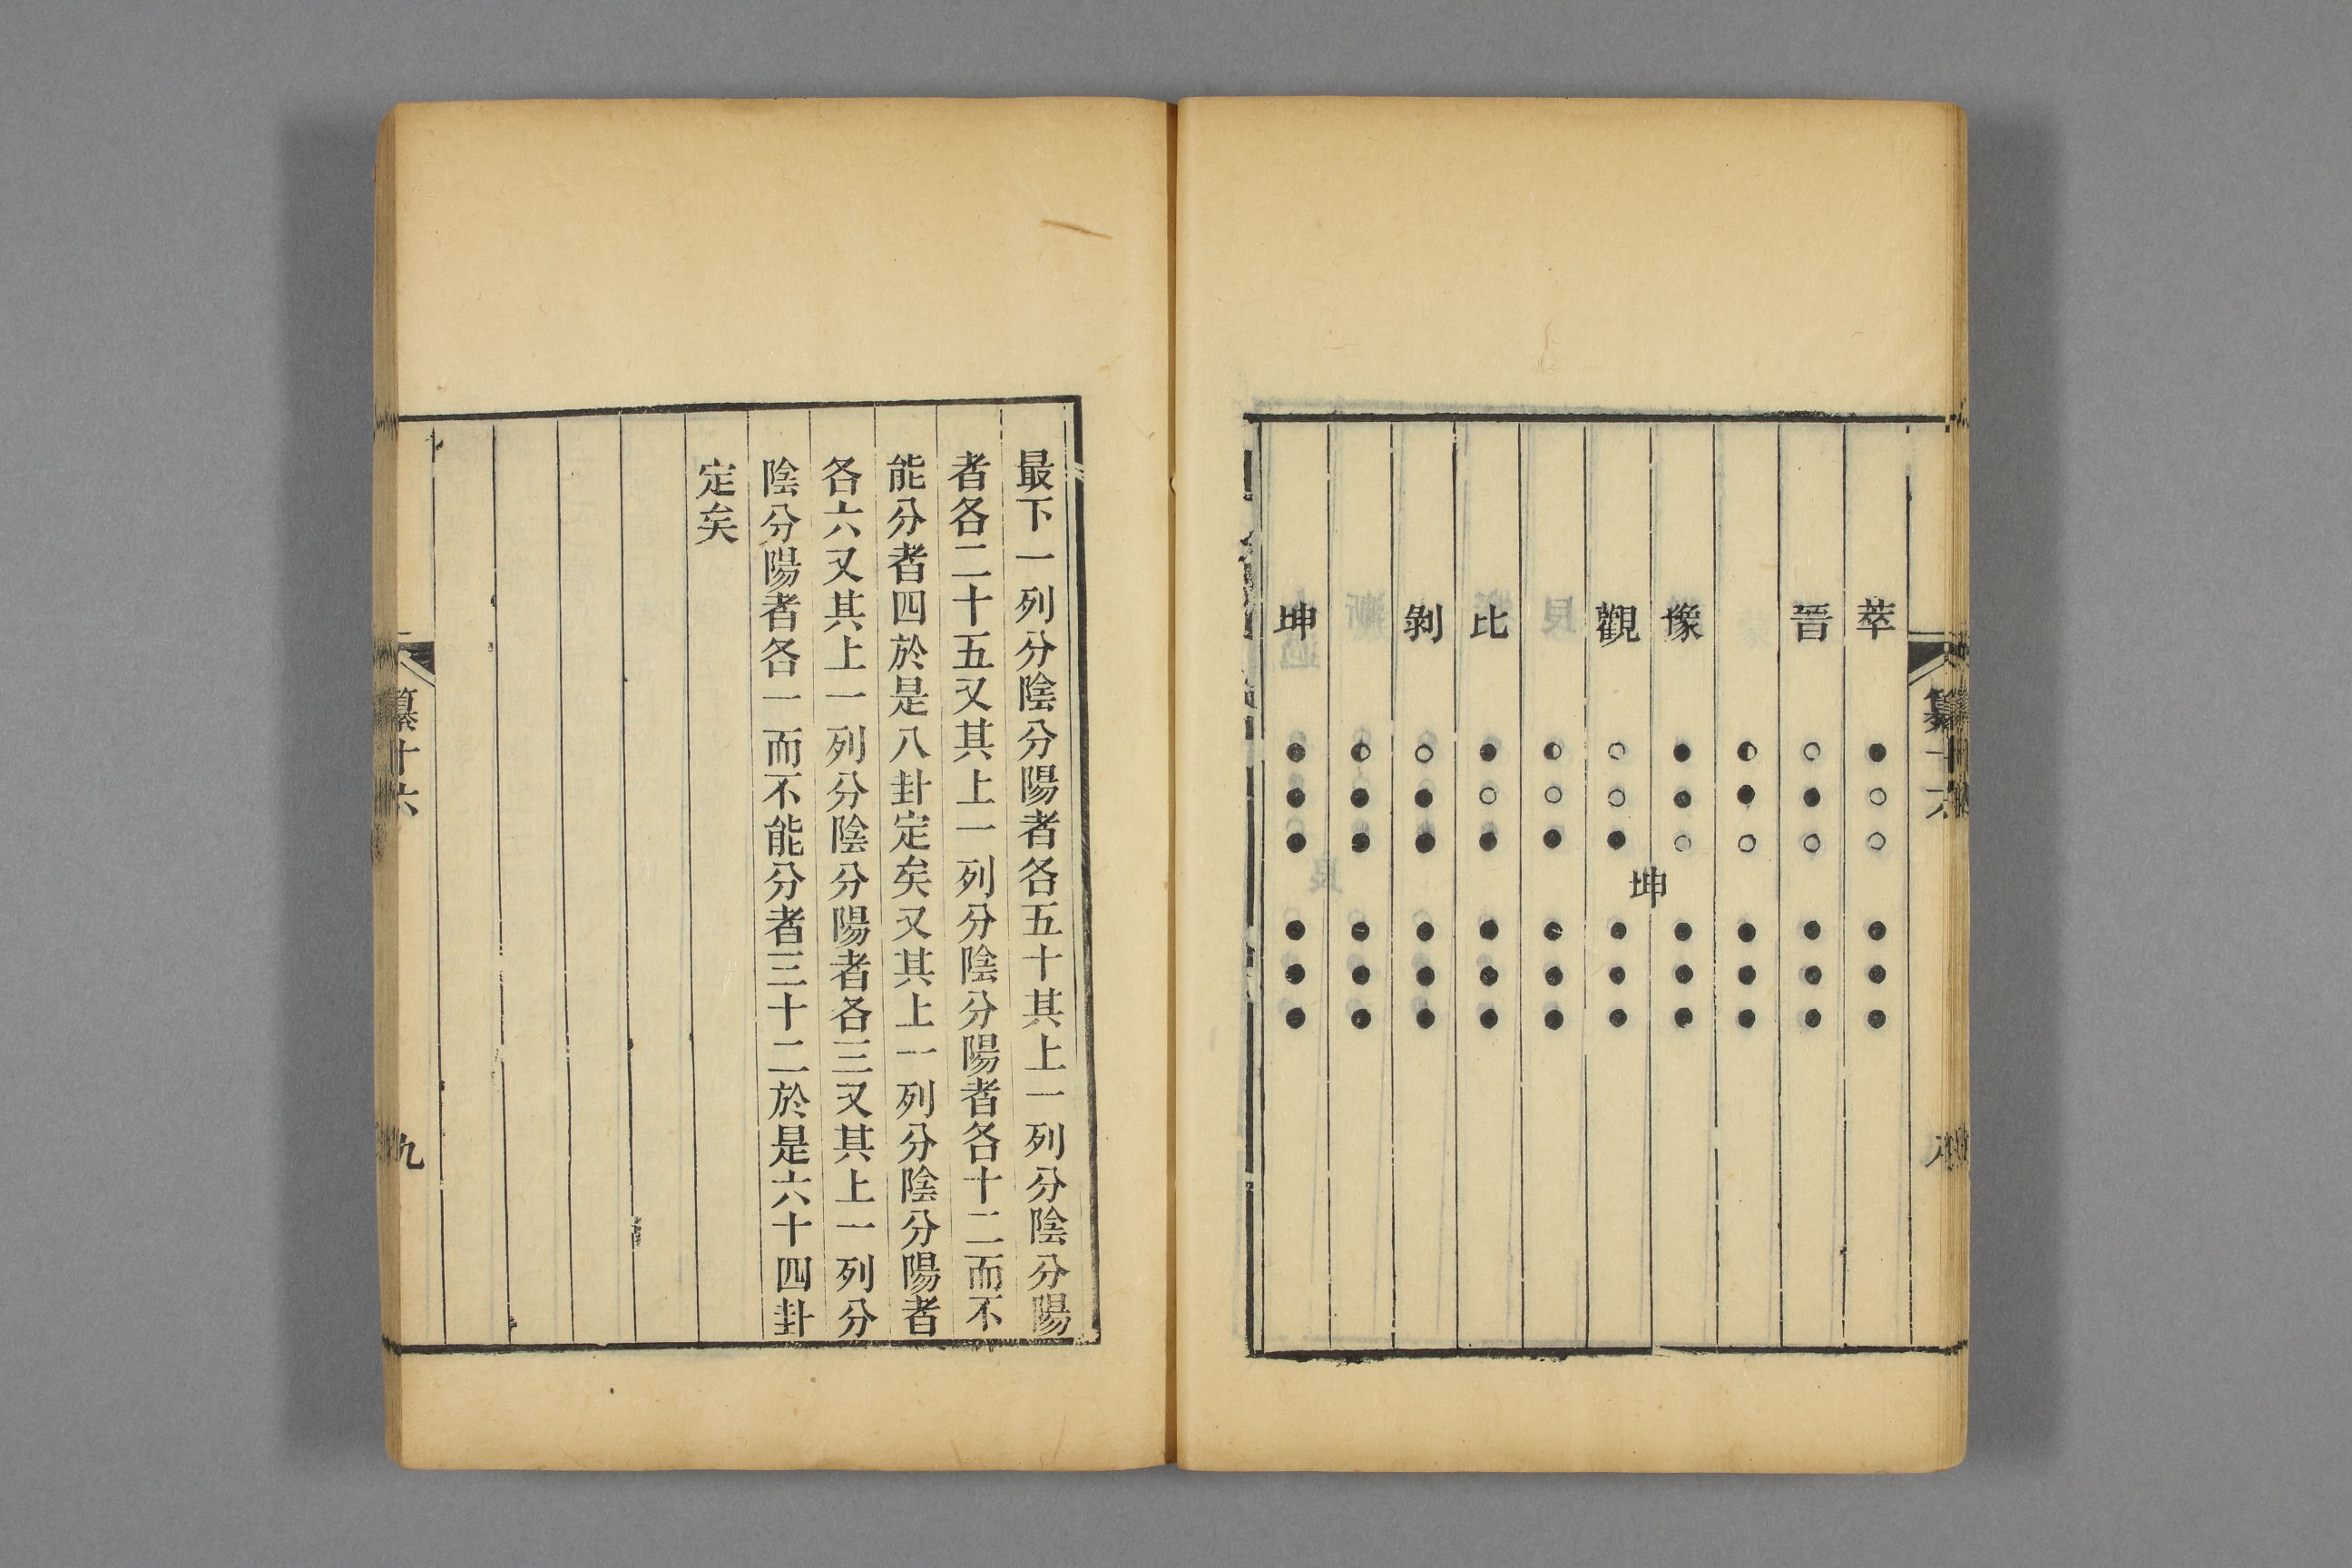 萃
晉
豫
觀
比
剝
坤
坤
纂十六
最下一列分陰分陽者各五十其上一列分陰分陽
者各二十五又其上一列分陰分陽者各十二而不
能分者四於是八卦定矣又其上一列分陰分陽者
各六又其上一列分陰分陽者各三又其上一列分
陰分陽者各一而不能分者三十二於是六十四卦
定矣
纂十六
九